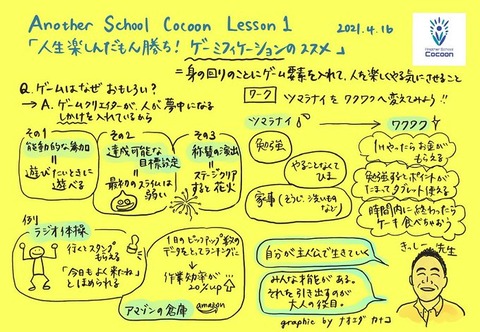 Another School Cocoon Lesson 1
2021.4.16
Another School
Cocoon
「人生楽しんだもん勝ち! ゲーミフィケーションのススメ」
=身の回りのことにゲーム要素を入れて、人を楽しくやる気にさせること
Q.ゲームはなぜおもしろい?
→A.ゲームクリエイターが、人が夢中になる
しかけを入れているから
その1
能動的な参加
=
遊びたいときに
遊べる
その2
達成可能な
目標設定
=
最初のスライムは
弱い
その3
称賛の演出
=
ステージクリア
すると花火
ワーク
ツマラナイをワクワクへ変えてみよう!!
ツマラナイ
→
ワクワク
勉強
やることなくて
ひま
家事(そうじ、洗いもの
など)
1Hやったらお金が
もらえる
勉強するとポイントが
たまってタブレット使える
時間内に終わったら
ケーキ食べちゃおう
例)
ラジオ体操
行くとスタンプ
もらえる
「今日もよく来たね」
とほめられる
1日のピックアップ数の
データをとってランキングに
↓
作業効率が
20%up
アマゾンの倉庫
amazon
きっしー先生
自分が主人公で生きていく
みんな才能がある。
それを引き出すのが
大人の役目。
graphic by ナオエダ カナコ